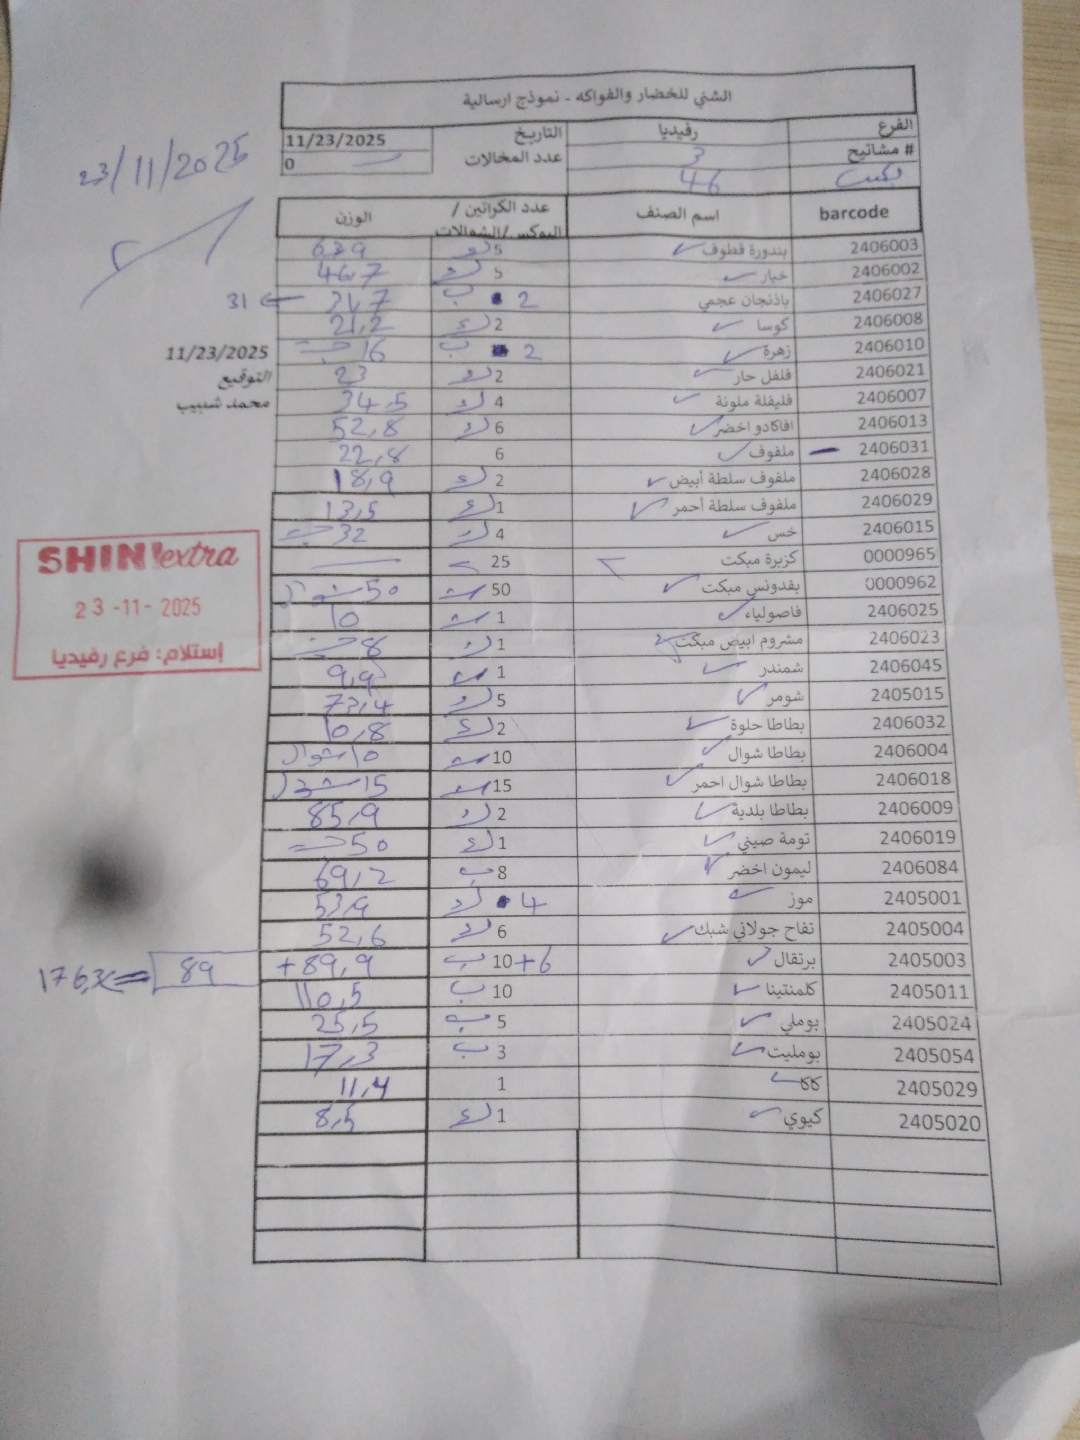 الشني للخضار والفواكه - نموذج ارسالية
الفرع رفيديا التاريخ 11/23/2025
# مشاتيح 3 عدد المخالات 0
بكيت 46
23/11/2025
barcode اسم الصنف عدد الكراتين / البوكس/الشوالات الوزن
2406003 بندورة قطوف 5 ك
2406002 خيار 5 ك 46,7
2406027 باذنجان عجمي 2 ب 31,7 ← 31
2406008 كوسا 2 ك 21,2
2406010 زهرة 2 ب 16 حبة
11/23/2025
2406021 فلفل حار 2 ك 23
التوقيع
2406007 فليفلة ملونة 4 ك 34,5
محمد شبيب
2406013 افاكادو اخضر 6 ك 52,8
2406031 ملفوف 6 22,8
2406028 ملفوف سلطة أبيض 2 ك 18,9
2406029 ملفوف سلطة أحمر 1 ك 13,5
2406015 خس 4 ك 32 حبة
0000965 كزبرة مبكت 25
0000962 بقدونس مبكت 50 50
2406025 فاصولياء 1 10
2406023 مشروم ابيض مبكت 1 ك 8 حبة
2406045 شمندر 1 9,9
2405015 شومر 5 ك 73,4
2406032 بطاطا حلوة 2 ك 10,8
2406004 بطاطا شوال 10 ش 10 شوال
2406018 بطاطا شوال احمر 15 ش 15 شوال
2406009 بطاطا بلدية 2 ك 85,9
2406019 تومة صيني 1 ك 50 حبة
2406084 ليمون اخضر 8 ب 69,2
2405001 موز 4 ك 53,9
2405004 تفاح جولاني شبك 6 ك 52,6
2405003 برتقال 10+6 ب 89,9+ 89
2405011 كلمنتينا 10 ب 110,5
2405024 بوملي 5 ب 25,5
2405054 بومليت 3 ب 17,3
2405029 كاكا 1 11,4
2405020 كيوي 1 ك 8,5
SHINI extra
23-11-2025
إستلام: فرع رفيديا